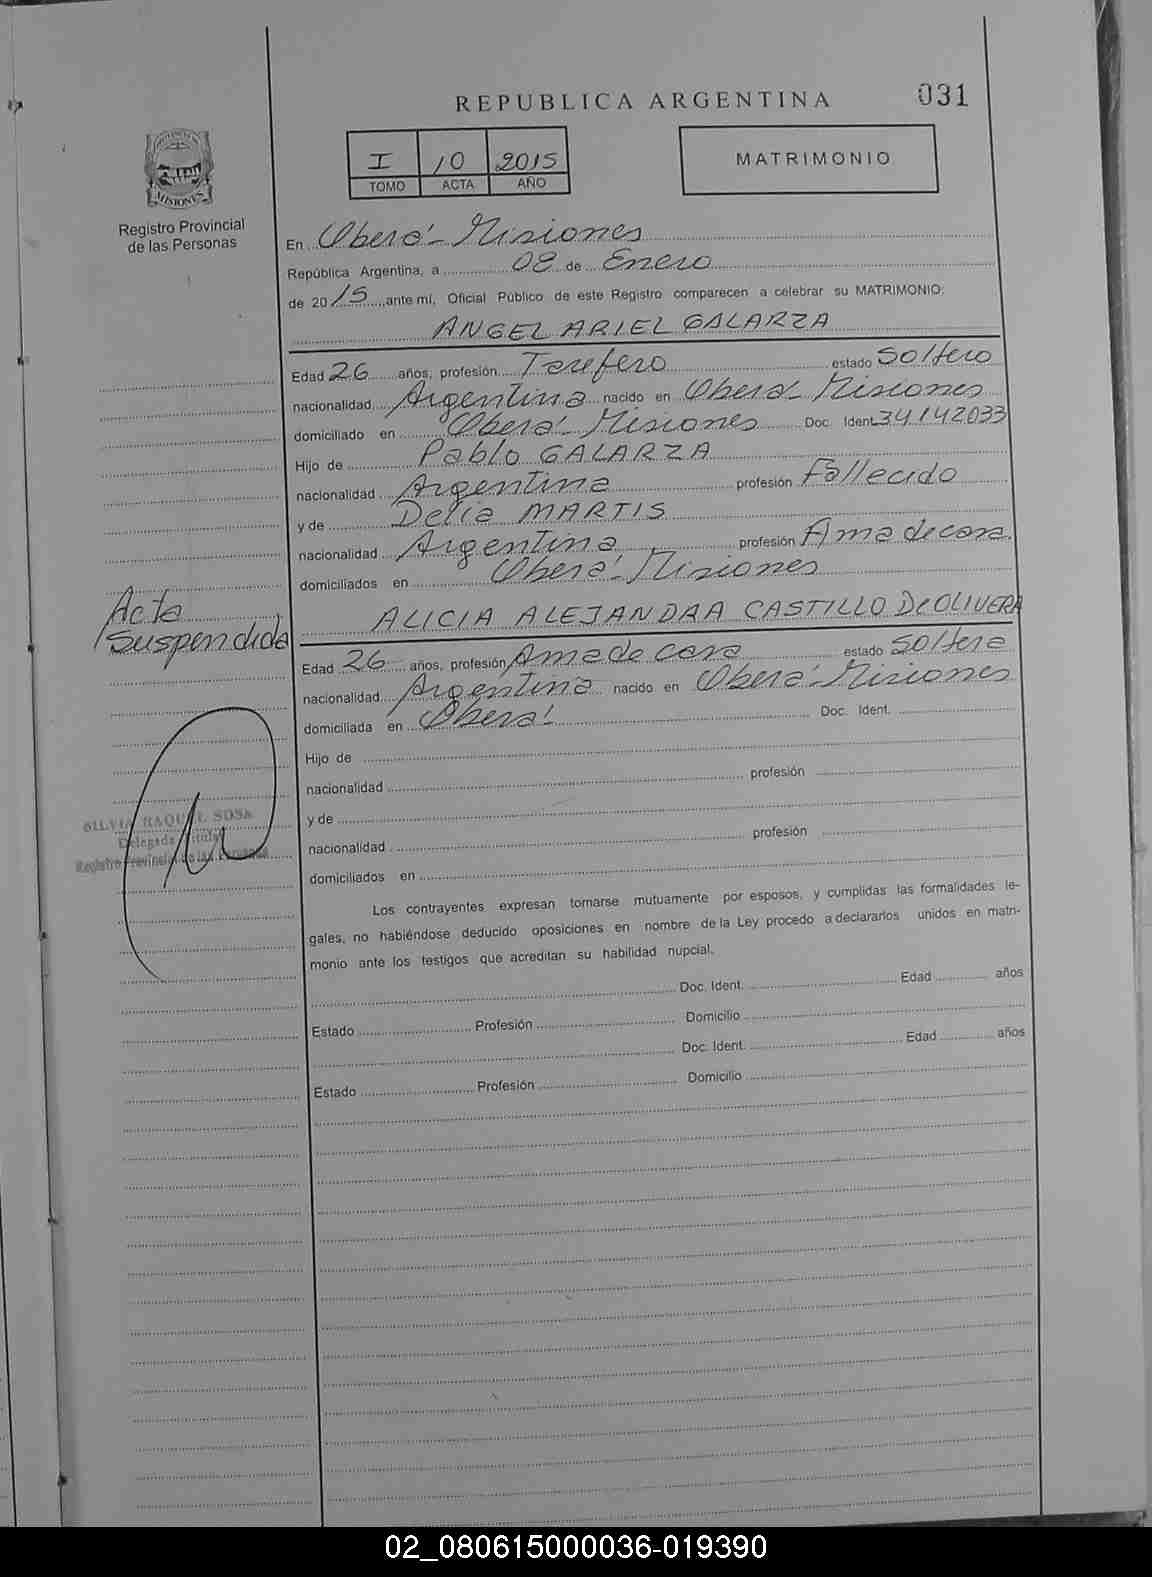 REPUBLICA ARGENTINA 031
I 10 2015
TOMO ACTA AÑO
MATRIMONIO
MISIONES
Registro Provincial
de las Personas
En Oberá - Misiones
República Argentina, a 08 de Enero
de 2015 ante mí, Oficial Público de este Registro comparecen a celebrar su MATRIMONIO:
ANGEL ARIEL GALARZA
Edad 26 años, profesión Tarefero estado Soltero
nacionalidad Argentina nacido en Oberá - Misiones
domiciliado en Oberá - Misiones Doc. Ident. 34142033
Hijo de Pablo GALARZA
nacionalidad Argentina profesión Fallecido
y de Delia MARTIS
nacionalidad Argentina profesión Ama de casa
domiciliados en Oberá - Misiones
Acta
Suspendida
ALICIA ALEJANDRA CASTILLO De OLIVERA
Edad 26 años, profesión Ama de casa estado Soltera
nacionalidad Argentina nacido en Oberá - Misiones
domiciliada en Oberá Doc. Ident.
Hijo de
nacionalidad profesión
y de
nacionalidad profesión
domiciliados en
SILVIA RAQUEL SOSA
Delegada Titular
Registro Provincial de las Personas
Los contrayentes expresan tomarse mutuamente por esposos, y cumplidas las formalidades le-
gales, no habiéndose deducido oposiciones en nombre de la Ley procedo a declararlos unidos en matri-
monio ante los testigos que acreditan su habilidad nupcial.
Doc. Ident. Edad años
Estado Profesión Domicilio
Doc. Ident. Edad años
Estado Profesión Domicilio
02_080615000036-019390